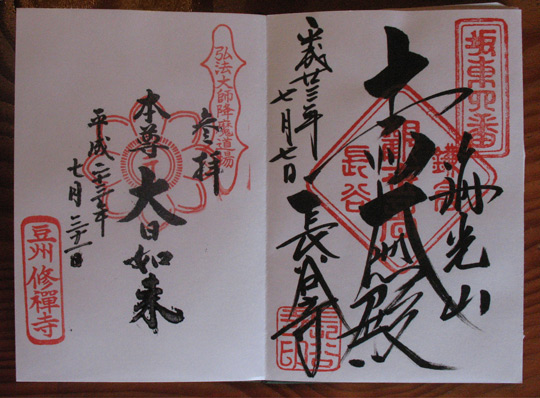 坂東四番
海光山
殿
鎌倉
長谷
平成廿三年
七月七日
長谷寺
弘法大師降魔道場
参拝
本尊 大日如来
平成二十三年
七月
豆州 修禪寺